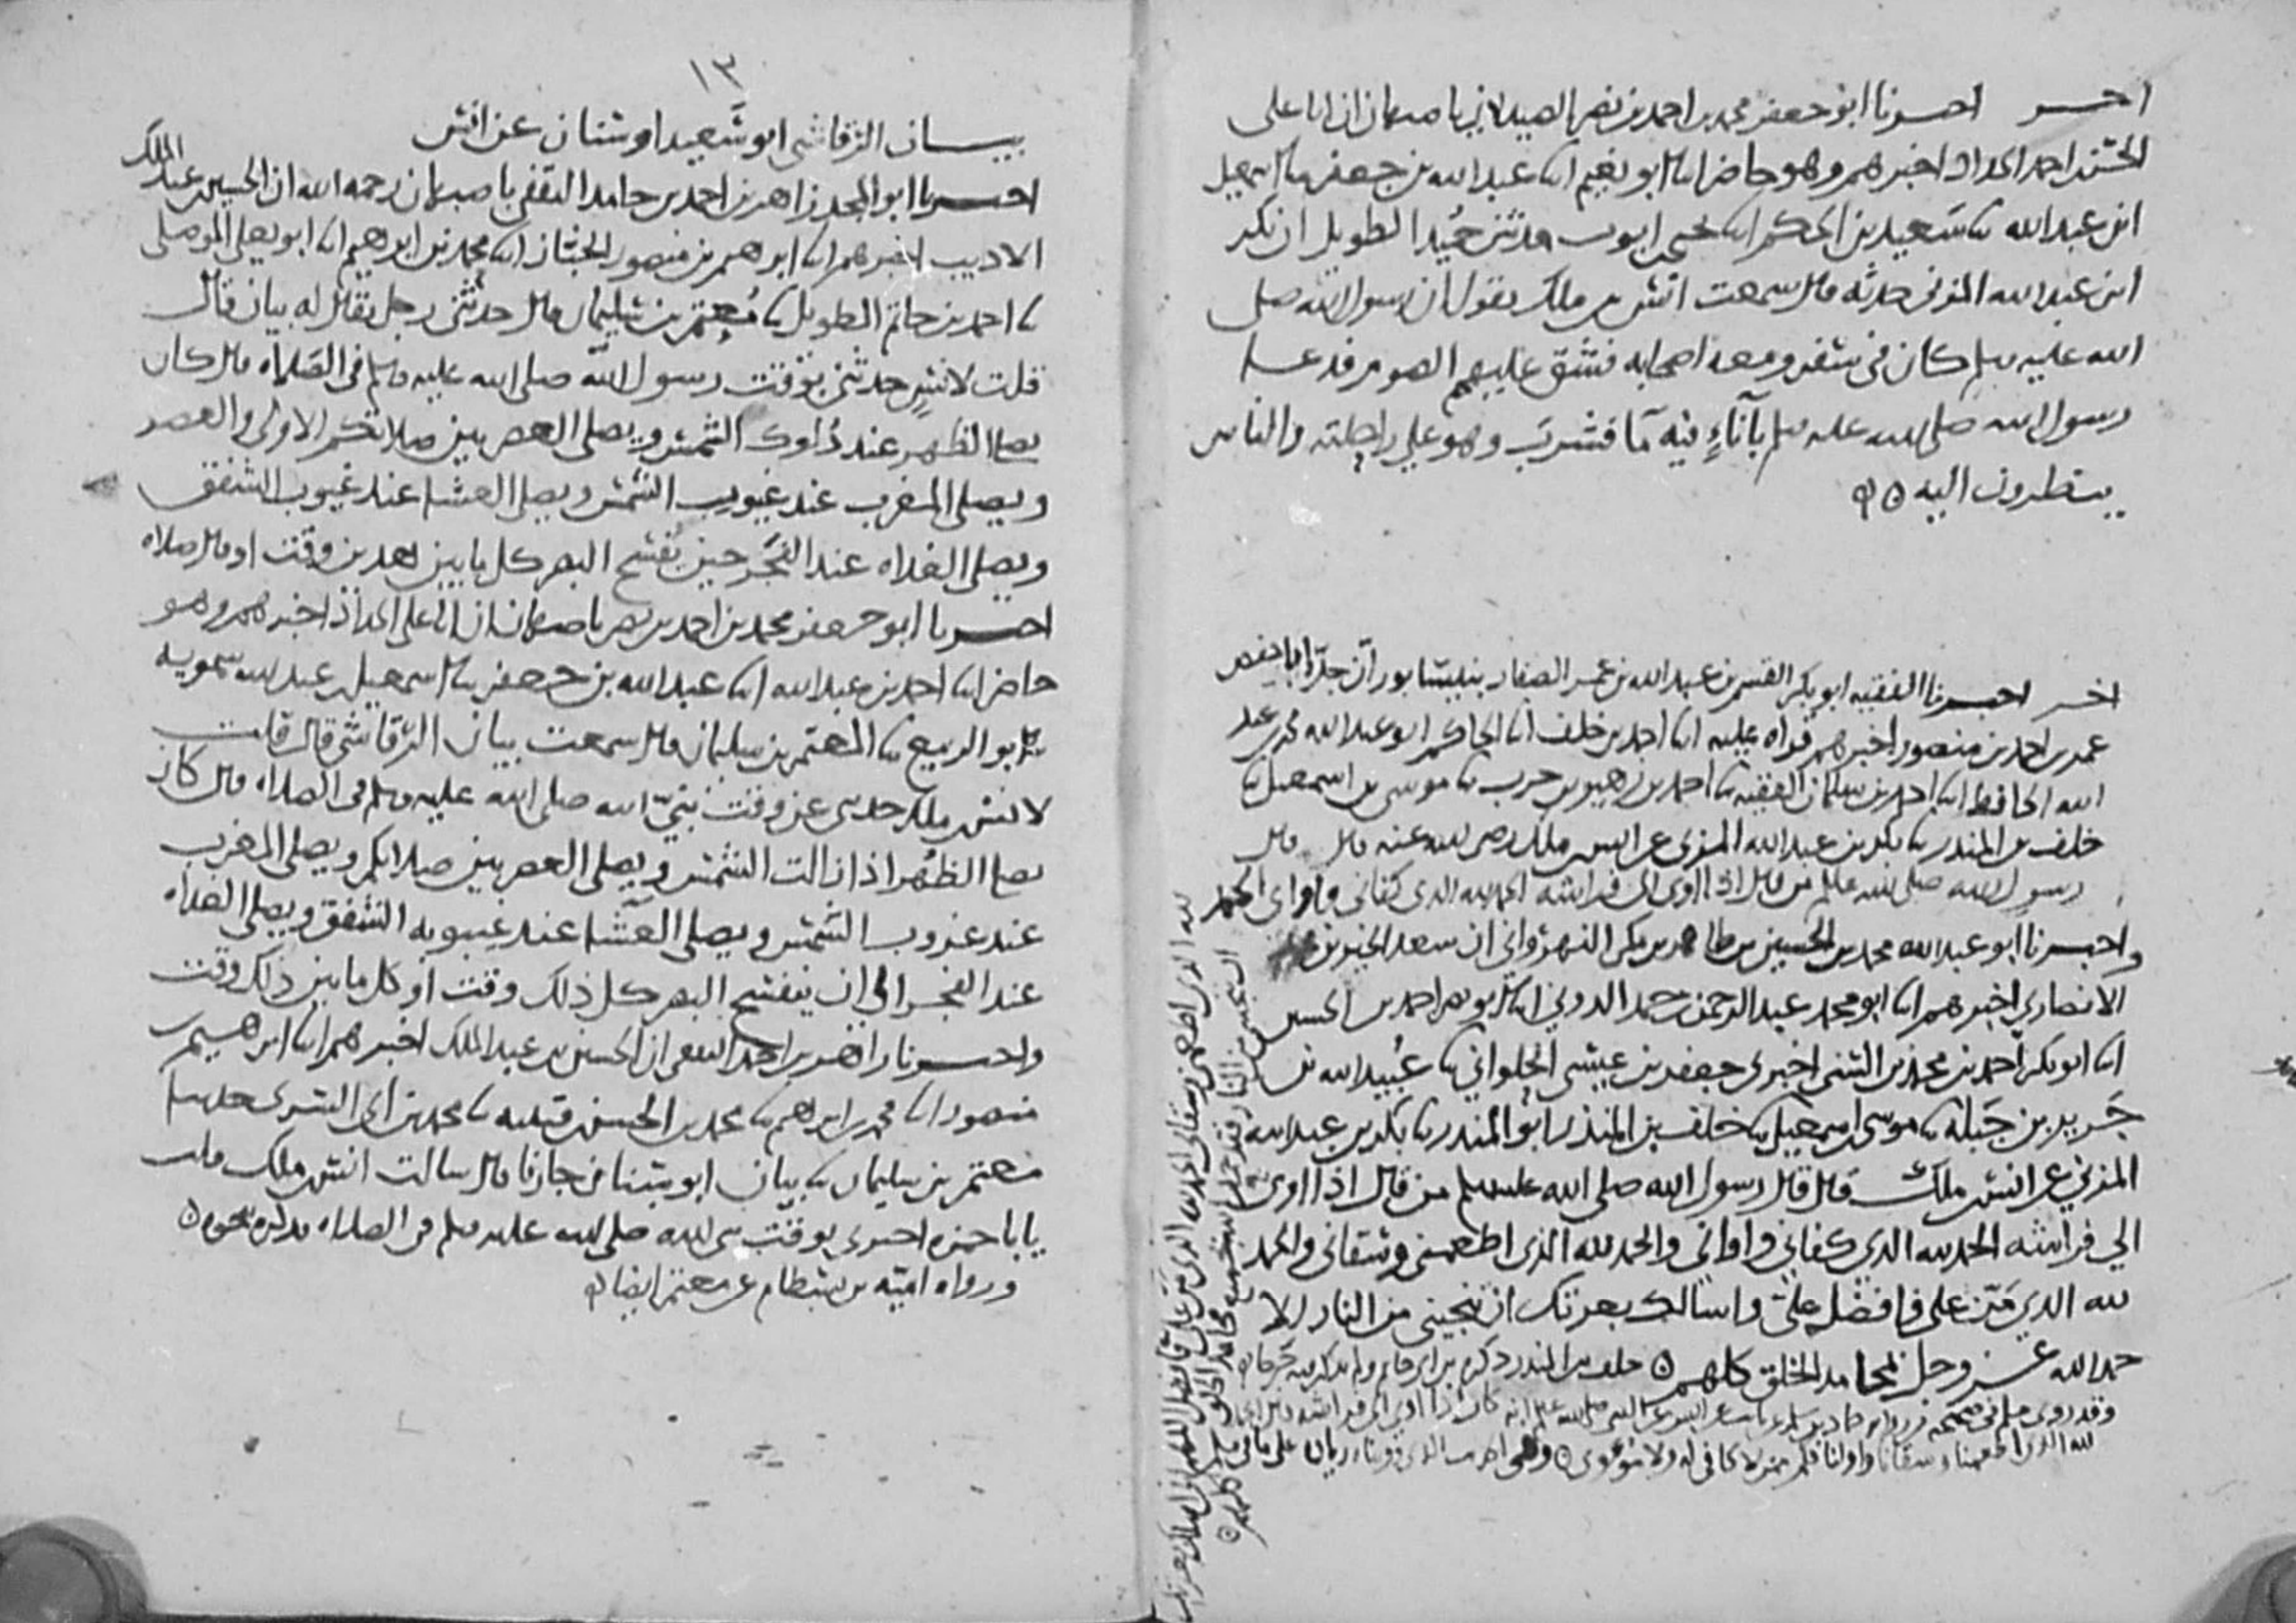 اخر اخبرنا ابو جعفر محمد بن احمد بن نصر الصيدلاني باصبهان ان ابا علي
الحسن احمد الحداد اخبرهم وهو حاضر ابا ابو نعيم ابا عبد الله بن جعفر ثنا اسمعيل
ابن عبد الله ثنا سعيد بن الحكم ابا يحيى ايوب حدثني حميد الطويل ان بكر
ابن عبد الله المزني حدثه قال سمعت انس بن ملك يقول ان رسول الله صلى
الله عليه وسلم كان في سفر ومعه اصحابه فشق عليهم الصوم فدعا
رسول الله صلى الله عليه وسلم بآناء فيه ما فشرب وهو على راحلته والناس
ينظرون اليه
اخر اخبرنا الفقيه ابو بكر القسم بن عبد الله بن عمر الصفار بنيسابور ان جده ابا حفص
عمر بن احمد بن منصور اخبرهم قراه عليه ابا احمد بن خلف ابا الحاكم ابو عبد الله محمد بن عبد
الله الحافظ ابا احمد بن سلمان الفقيه ثنا احمد بن زهير بن حرب ثنا موسى بن اسمعيل ثنا
خلف بن المنذر ثنا بكر بن عبد الله المزني عن انس بن ملك رضي الله عنه قال قال
رسول الله صلى الله عليه وسلم من قال اذا اوى الى فراشه الحمد لله الذي كفاني واواني الحمد
واخبرنا ابو عبد الله محمد بن الحسين بن طاهر بن مكر النهرواني ان سعد الخير بن محمد
الانصاري اخبرهم ابا ابو محمد عبد الرحمن حمد الدوني ابا ابو نصر احمد بن الحسين
ابا ابو بكر احمد بن محمد بن السني اخبرني جعفر بن عيسى الحلواني ثنا عبيد الله بن
جرير بن جبلة ثنا موسى اسمعيل ثنا خلف بن المنذر ابو المنذر ثنا بكر بن عبد الله
المزني عن انس ملك قال قال رسول الله صلى الله عليه وسلم من قال اذا اوى
الى فراشه الحمد لله الذي كفاني واواني والحمد لله الذي اطعمني وسقاني والحمد
لله الذي من علي فافضل علي واسالك بعزتك ان تنجيني من النار الا
حمد الله عز وجل بمحامد الخلق كلهم خلف بن المنذر ذكره بن ابي حاتم ولم يذكر فيه جرحا
وقد روى مسلم في صحيحه من رواية حماد بن سلمة عن ثابت عن انس عن النبي صلى الله عليه وسلم انه كان اذا اوى الى فراشه قال الحمد
لله الذي اطعمنا وسقانا واوانا فكم ممن لا كافي له ولا مؤوي
لله الذي اطعمني وسقاني الحمد لله الذي من علي فافضل
١٣
بيان الرقاشي ابو سعيد او سنان عن انس
اخبرنا ابو المجد زاهر بن احمد بن حامد الثقفي باصبهان رحمه الله ان الحسين عبد الملك
الاديب اخبرهم ابا ابرهيم بن منصور الخباز ابا محمد بن ابرهيم ابا ابو يعلى الموصلي
ثنا احمد بن حاتم الطويل ثنا معتمر بن سليمان قال حدثني رجل يقال له بيان قال
قلت لانس حدثني بوقت رسول الله صلى الله عليه وسلم في الصلاه قال كان
يصلي الظهر عند دلوك الشمس ويصلي العصر بين صلاتكم الاولى والعصر
ويصلي المغرب عند غيوب الشمس ويصلي العشا عند غيوب الشفق
ويصلي الغداه عند الفجر حين يفسح البصر كل ما بين هذين وقت او قال صلاه
اخبرنا ابو جعفر محمد بن احمد بن نصر باصبهان ان ابا علي الحداد اخبرهم وهو
حاضر ابا احمد بن عبد الله ابا عبد الله بن جعفر ثنا اسمعيل عبد الله سمويه
ثنا ابو الربيع ثنا المعتمر بن سليمان قال سمعت بيان الرقاشي قال قلت
لانس ملك حدثني عن وقت نبي الله صلى الله عليه وسلم في الصلاه قال كان
يصلي الظهر اذا زالت الشمس ويصلي العصر بين صلاتكم ويصلي المغرب
عند غروب الشمس ويصلي العشا عند غيبوبه الشفق ويصلي الغداه
عند الفجر الى ان ينفسح البصر كل ذلك وقت او كل ما بين ذلك وقت
واخبرنا زاهر بن احمد الثقفي ان الحسين بن عبد الملك اخبرهم ابا ابرهيم
منصور ابا محمد بن ابرهيم ثنا محمد بن الحسن قتيبه ثنا محمد بن ابي السري حدثنا
معتمر بن سليمان ثنا بيان ابو سنان جارنا قال سالت انس ملك قلت
يا ابا حمزه اخبرني بوقت نبي الله صلى الله عليه وسلم في الصلاه فذكره نحوه
ورواه اميه بن بسطام عن معتمر ايضا